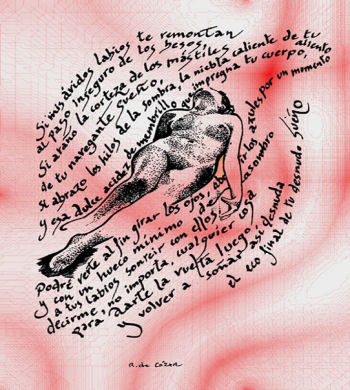 Si mis ávidos labios te remontan
al paso inseguro de los besos,
Si araño la corteza de los mástiles
de tu navegante sueño,
Si abrazo los hilos de la sombra, la niebla caliente de tu aliento
y esa dulce acidez de membrillo impregna tu cuerpo,
azules por un momento
Podré verte al fin girar los ojos
y con un hueco mínimo
a tus labios sonreir con ellos
decirme, no importa, cualquier
para darte la vuelta luego así desnuda
y volver a soñar
el eco final de tu desnudo sueño
R. de Cózar